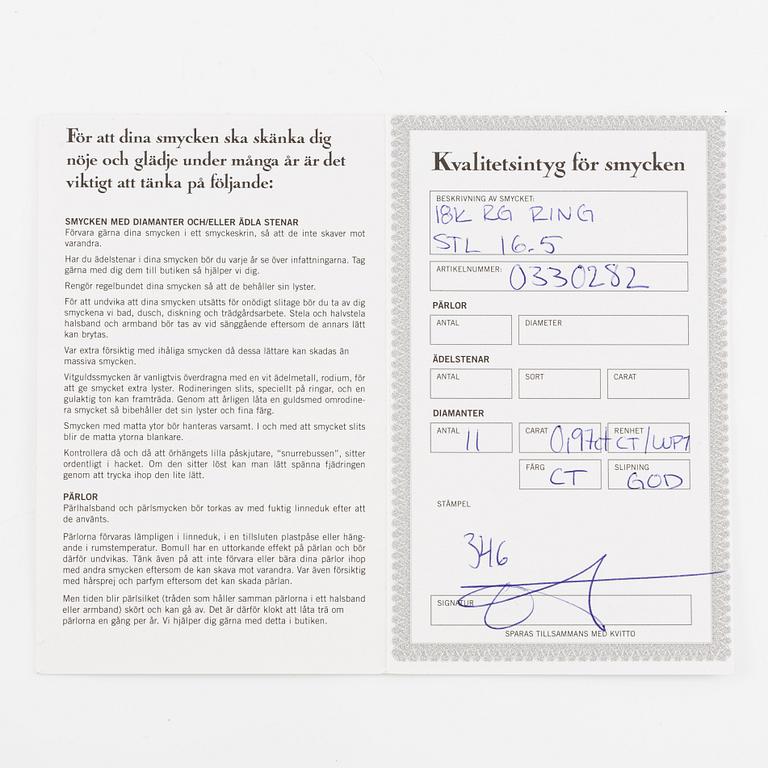 För att dina smycken ska skänka dig
nöje och glädje under många år är det
viktigt att tänka på följande:
SMYCKEN MED DIAMANTER OCH/ELLER ÄDLA STENAR
Förvara gärna dina smycken i ett smyckeskrin, så att de inte skaver mot
varandra.
Har du ädelstenar i dina smycken bör du varje år se över infattningarna. Tag
gärna med dig dem till butiken så hjälper vi dig.
Rengör regelbundet dina smycken så att de behåller sin lyster.
För att undvika att dina smycken utsätts för onödigt slitage bör du ta av dig
smyckena vi bad, dusch, diskning och trädgårdsarbete. Stela och halvstela
halsband och armband bör tas av vid sänggående eftersom de annars lätt
kan brytas.
Var extra försiktig med ihåliga smycken då dessa lättare kan skadas än
massiva smycken.
Vitguldssmycken är vanligtvis överdragna med en vit ädelmetall, rodium, för
att ge smycket extra lyster. Rodineringen slits, speciellt på ringar, och en
gulaktig ton kan framträda. Genom att årligen låta en guldsmed omrodine-
ra smycket så bibehåller det sin lyster och fina färg.
Smycken med matta ytor bör hanteras varsamt. I och med att smycket slits
blir de matta ytorna blankare.
Kontrollera då och då att örhängets lilla påskjutare, "snurrebussen", sitter
ordentligt i hacket. Om den sitter löst kan man lätt spänna fjädringen
genom att trycka ihop den lite lätt.
PÄRLOR
Pärlhalsband och pärlsmycken bör torkas av med fuktig linneduk efter att
de använts.
Pärlorna förvaras lämpligen i linneduk, i en tillsluten plastpåse eller häng-
ande i rumstemperatur. Bomull har en uttorkande effekt på pärlan och bör
därför undvikas. Tänk även på att inte förvara eller bära dina pärlor ihop
med andra smycken eftersom de kan skava mot varandra. Var även försiktig
med hårsprej och parfym eftersom det kan skada pärlan.
Men tiden blir pärlsilket (tråden som håller samman pärlorna i ett halsband
eller armband) skört och kan gå av. Det är därför klokt att låta trä om
pärlorna en gång per år. Vi hjälper dig gärna med detta i butiken.
Kvalitetsintyg för smycken
BESKRIVNING AV SMYCKET:
18K RG RING
STL 16.5
ARTIKELNUMMER: 0330282
PÄRLOR
ANTAL DIAMETER
ÄDELSTENAR
ANTAL SORT CARAT
DIAMANTER
ANTAL 11 CARAT 0,197ct RENHET CT/WP1
FÄRG CT SLIPNING GOD
STÄMPEL
346
SIGNATUR
SPARAS TILLSAMMANS MED KVITTO